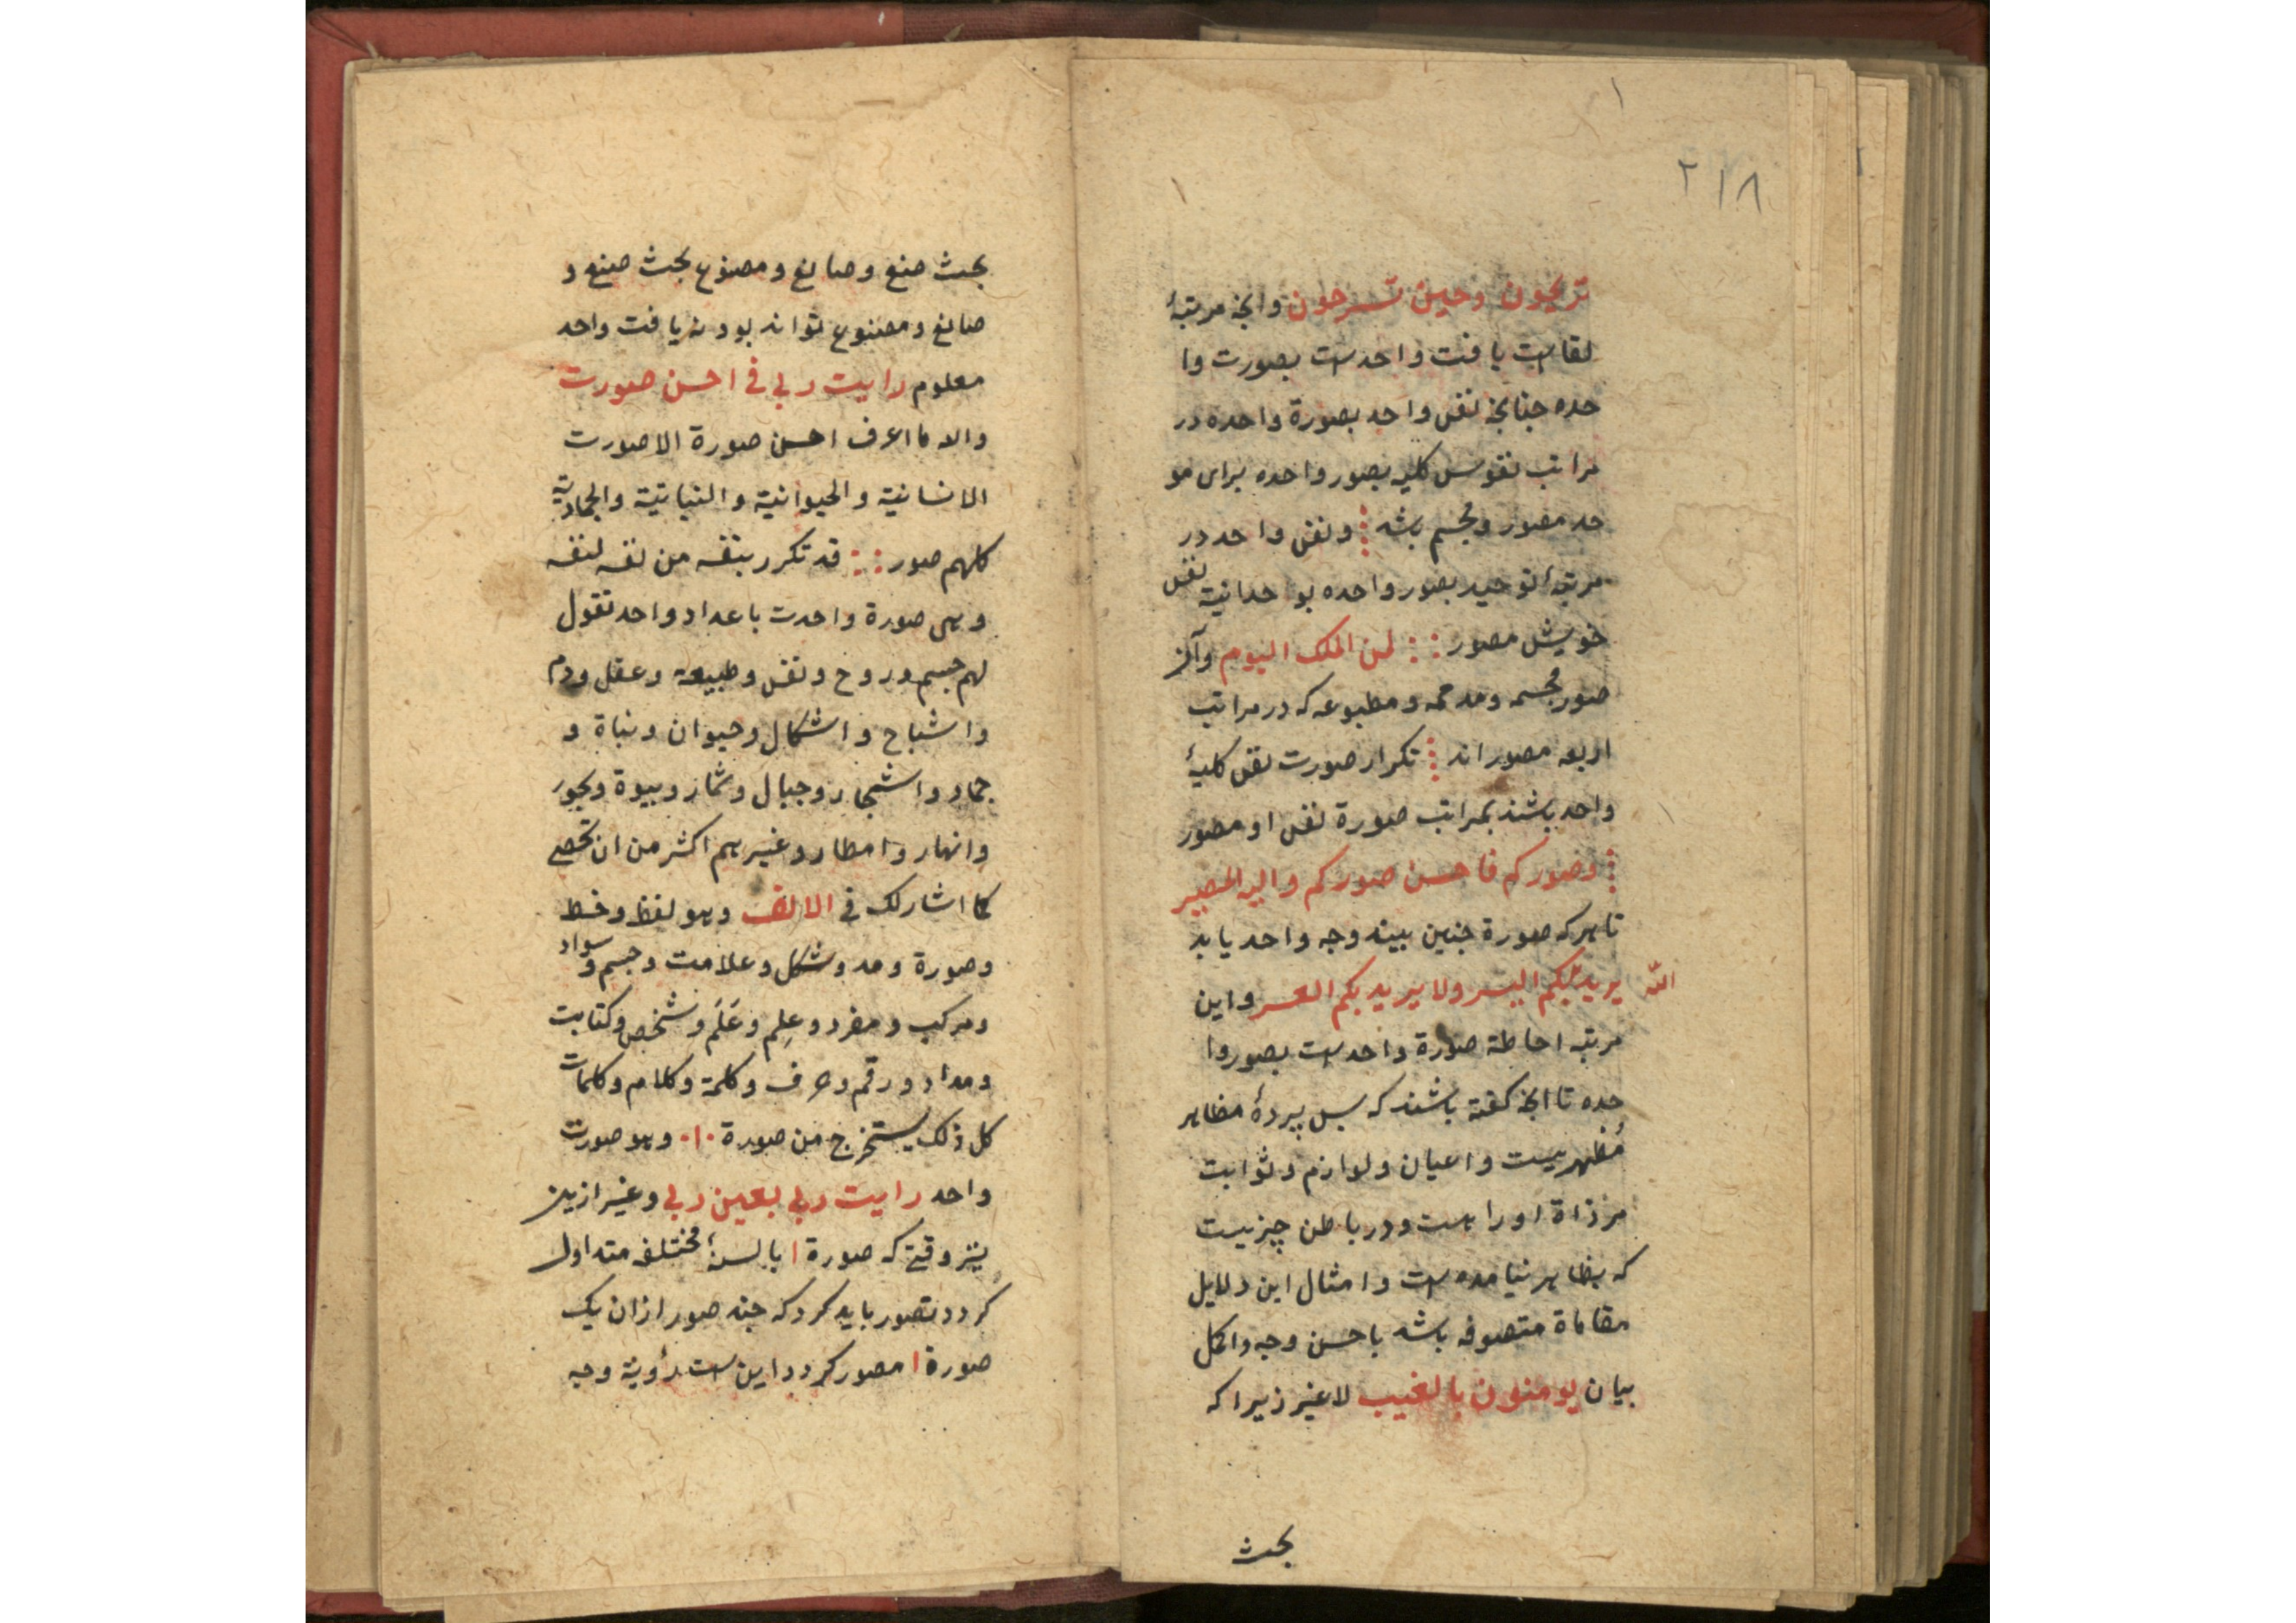 ۲۱۸
تریحون وحین تسرحون وانچه مرتبهٔ
لقاست یافت واحدست بصورت وا
حده چنانچه نفس واحد بصورة واحده در
مراتب نفوس کلیه بصور واحده برای مو
حد مصور ومجسم باشد ⁞ ونفس واحد در
مرتبهٔ توحید بصور واحده بوحدانیة نفس
خویش مصور ∴ لمن الملک الیوم وآنکه
صور مجسمه ومدحمه ومطبوعه که در مراتب
اربعه مصوراند ⁞ تکرار صورت نفس کلیهٔ
واحد باشند بمراتب صورة نفس او مصور
⁞ وصورکم فاحسن صورکم والیه المصیر
تا هرکه صورة چنین بیند وجه واحد یابد
یرید الله بکم الیسر ولا یرید بکم العسر واین
مرتبه احاطة صورة واحدست بصور وا
حده تا انچه گفته باشند که پس پردهٔ مظاهر
مُظهریست واعیان ولوازم وثوابت
مر ذاة اوراست ودر باطن چیزیست
که بظاهر نیامده است وامثال این دلایل
مقاماة متصوفه باشد باحسن وجه واکمل
بیان یومنون بالغیب لاغیر زیرا که
بحث
بحث صنع وصانع ومصنوع بحث صنع و
صانع ومصنوع تواند بود نه یافت واحد
معلوم رایت ربی فی احسن صورت
والا ما اعرف احسن صورة الا صورت
الانسانیة والحیوانیة والنباتیة والجمادیة
کلهم صور ∴ قد تکرر بنفسه من نفسه لنفسه
وهی صورة واحدت باعداد واحد تقول
لهم جسم وروح ونفس وطبیعة وعقل ودم
واشباح واشکال وحیوان ونباة و
جماد واشجار وجبال وثمار وبیوة وبحور
وانهار وامطار وغیرهم اکثر من ان تحصی
کما اشار لک فی الالف وهو لفظ وخط
وصورة ومد وشکل وعلامت وجسم وسواد
ومرکب ومفرد وعِلم وعَلَم وشخص وکتابت
ومداد ورقم وحرف وکلمة وکلام وکلمات
کل ذلک یستخرج من صورة ۰۱۰ وهو صورت
واحد رایت ربی بعین ربی وغیر ازین
نیز وقتی که صورة ا بالسنهٔ مختلف متداول
گردد تصور باید کرد که چند صور ازان یک
صورة ا مصور گردد این ست رؤیة وجه